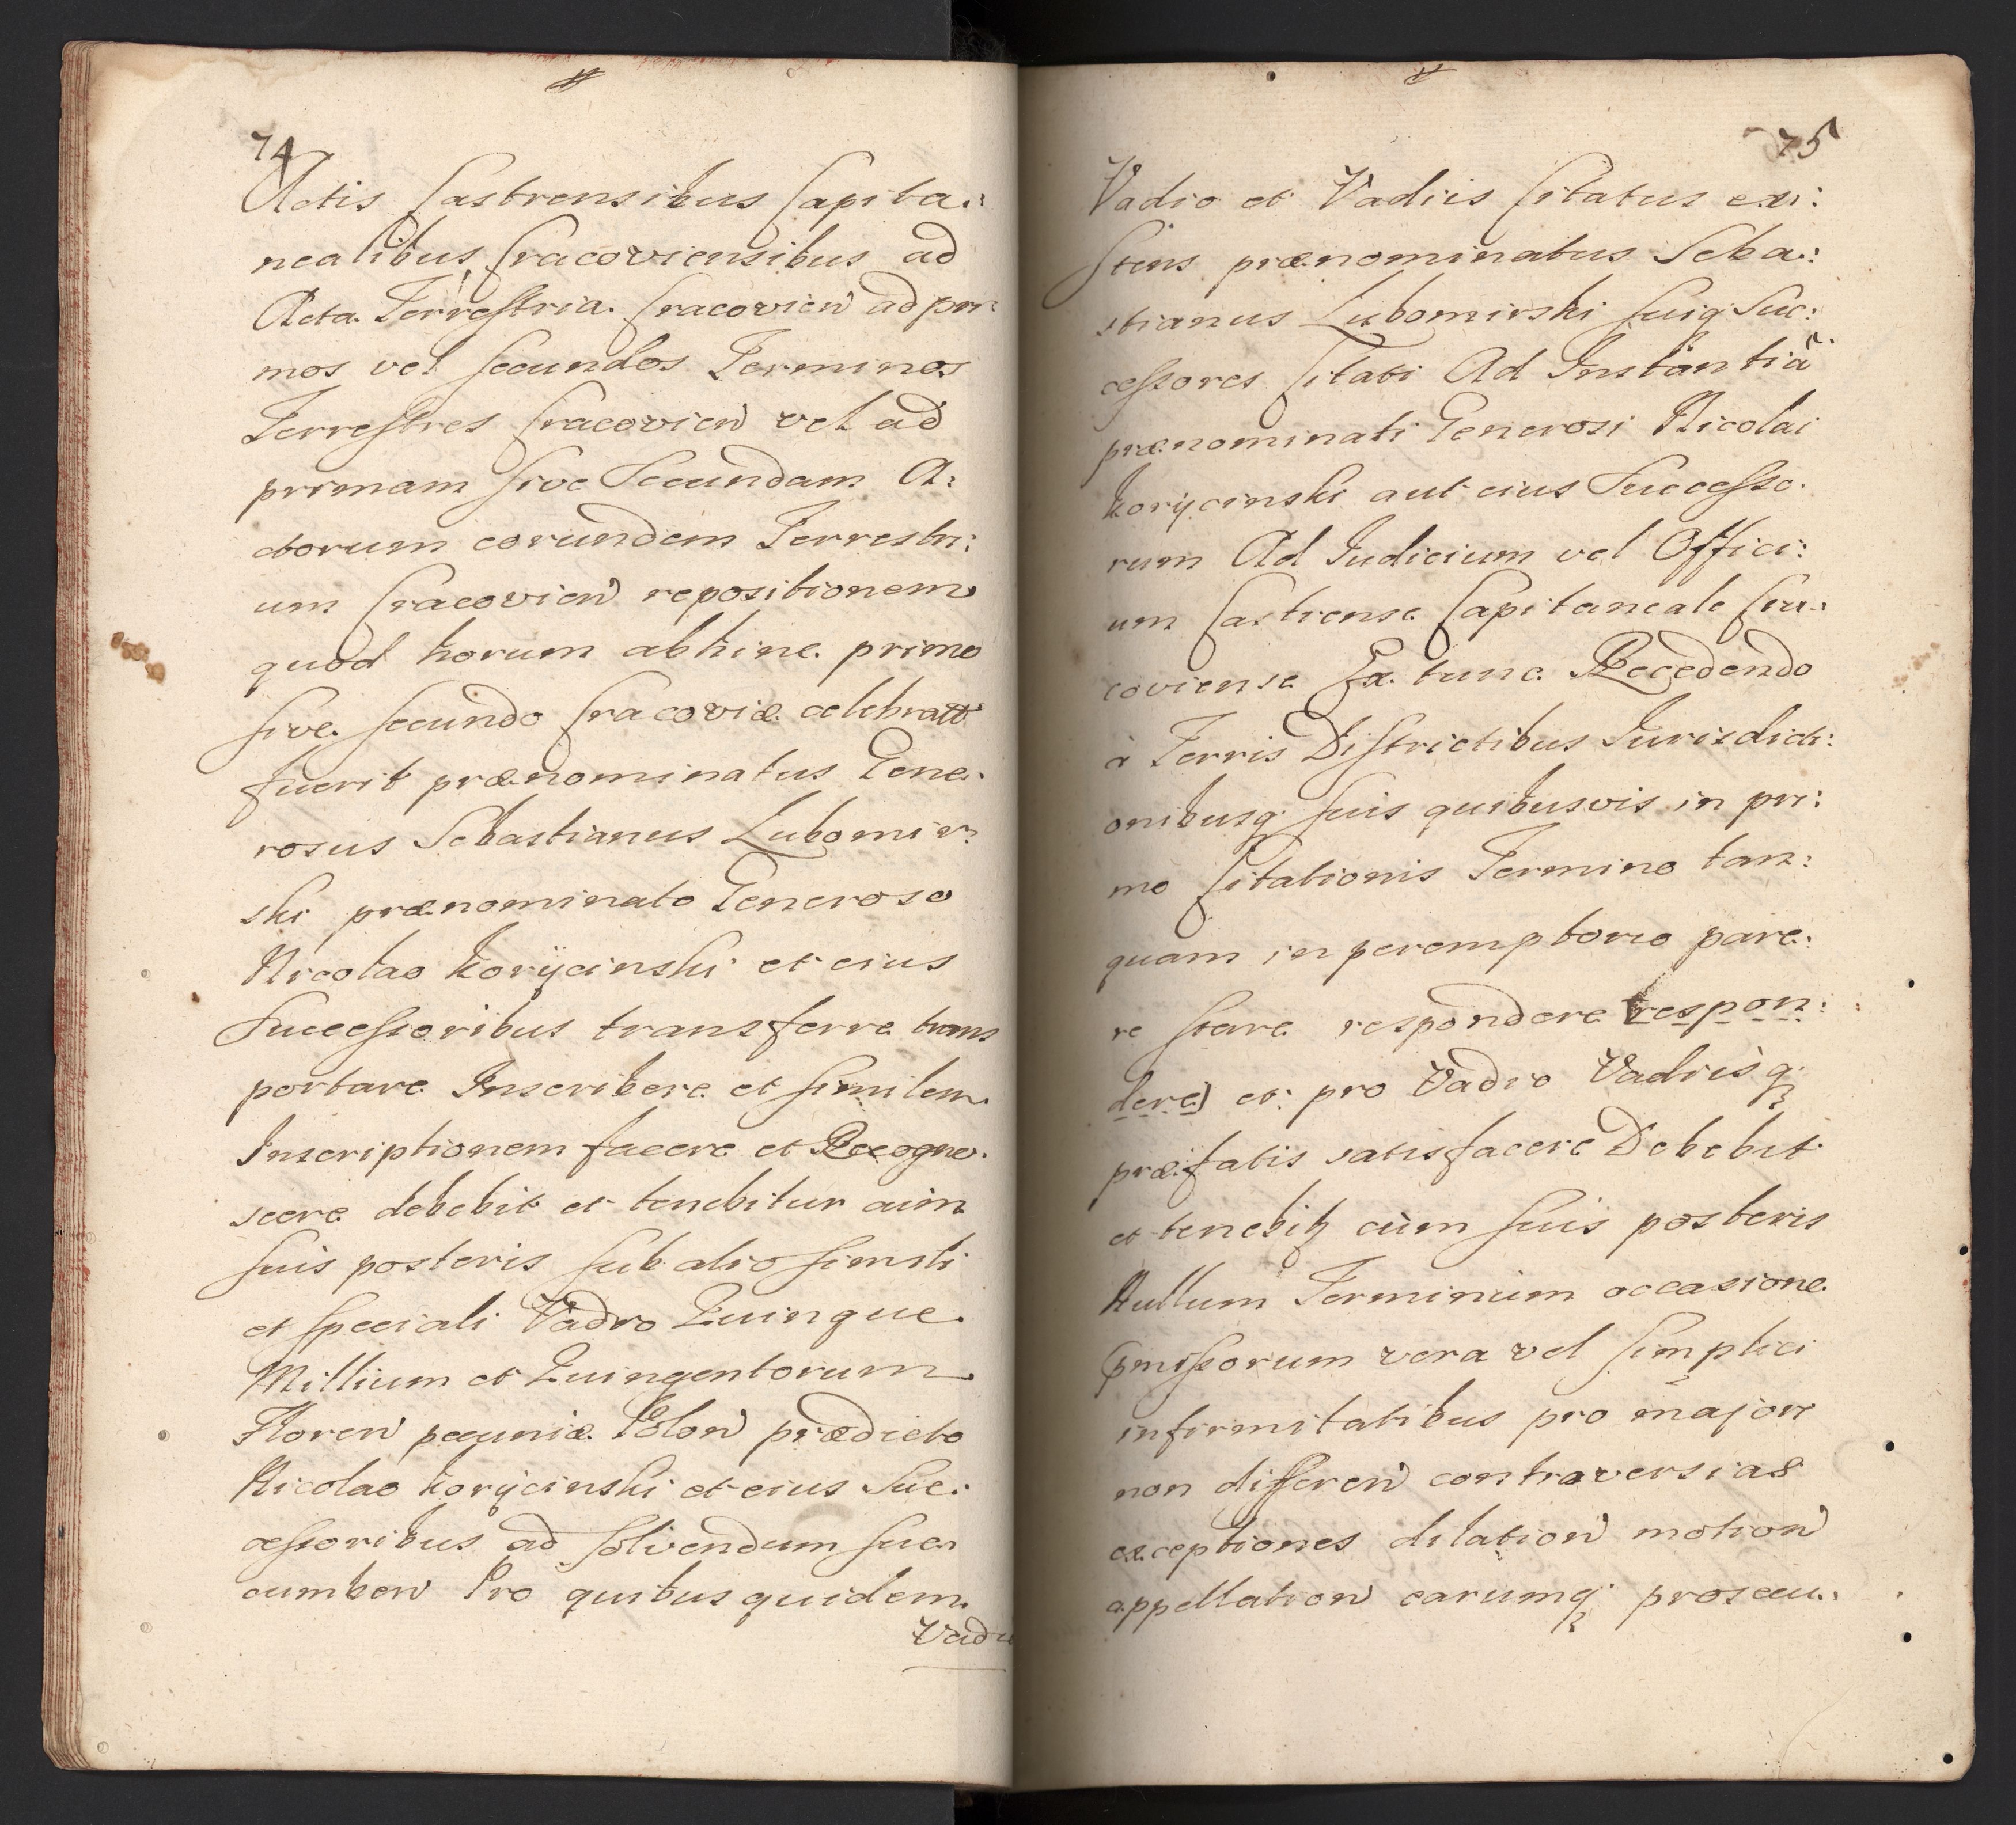 74
Actis Castrensibus Capita:
nealibus Cracoviensibus ad
Acta Terrestria Cracovien̄ ad pri:
mos vel secundos Terminos
Terrestres Cracovien̄ vel ad
primam sive Secundam A:
ctorum eorundem Terrestri:
um Cracovien̄ repositionem
quod horum abhinc primo
sive secundo Cracoviæ celebratt
fuerit prænominatus Gene:
rosus Sebastianus Lubomir:
ski prænominato Generoso
Nicolao Korÿcinski et eius
Successoribus transferre trans
portare Inscribere et similem
Inscriptionem facere et Recogno:
scere debebit et tenebitur cum
suis posteris sub alio simili
et speciali Vadio Quinque
Millium et Quingentorum
Floren̄ pecuniæ Polon̄ prædicto
Nicolao Korÿcinski et eius Suc:
cessoribus ad solvendum suc:
cumben̄ Pro quibus quidem
Vadi
75
Vadio et Vadiis Citatus exi:
stens prænominatus Seba:
stianus Lubomirski suiq Suc:
cessores Citati Ad Instantiã
prænominati Generosi Nicolai
Korÿcinski aut eius Successo:
rum Ad Iudicium vel Offici:
um Castrense Capitaneale Cra:
coviense Ex tunc Recedendo
à Terris Districtibus Iurisdicti:
onibusq suis quibusvis in pri:
mo Citationis Termino tan:
quam in peremptorio pare:
re stare respondere (respon:
dere) et pro Vadio Vadiisq
præfatis satisfacere Debebit
et tenebitz cùm suis posteris
Nullum Terminùm occasione
pmissorum vera vel simplici
infirmitatibus pro majori
non differen̄ controversias
exceptiones dilation̄ motion̄
appellation̄ earumq prosecu: